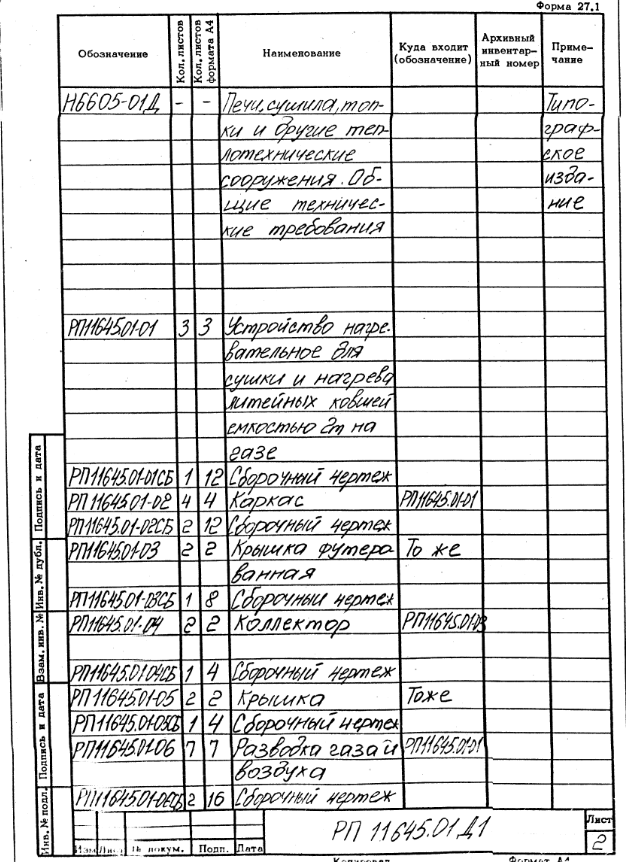 Форма 27.1
Обозначение Кол. листов Кол. листов формата А4 Наименование Куда входит (обозначение) Архивный инвентар- ный номер Приме- чание
Н6605-01Д - - Печи, сушила, топ- Типо-
ки и другие теп- граф-
лотехнические ское
сооружения. Об- изда-
щие техничес- ние
кие требования
РП11645.01-01 3 3 Устройство нагре-
вательное для
сушки и нагрева
литейных ковшей
емкостью 2т на
газе
РП11645.01-01СБ 1 12 Сборочный чертеж
РП11645.01-02 4 4 Каркас РП11645.01-01
РП11645.01-02СБ 2 12 Сборочный чертеж
РП11645.01-03 2 2 Крышка футеро То же
ванная
РП11645.01-03СБ 1 8 Сборочный чертеж
РП11645.01-04 2 2 Коллектор РП11645.01-03
РП11645.01-04СБ 1 4 Сборочный чертеж
РП11645.01-05 2 2 Крышка То же
РП11645.01-05СБ 1 4 Сборочный чертеж
РП11645.01-06 7 7 Разводка газа и РП11645.01-01
воздуха
РП11645.01-06СБ 2 16 Сборочный чертеж
Подпись и дата
Инв. № дубл.
Взам. инв. №
Подпись и дата
Инв. № подл.
РП 11645.01 Д1
Лист
2
Изм Лист № докум. Подп. Дата
Копировал Формат А4